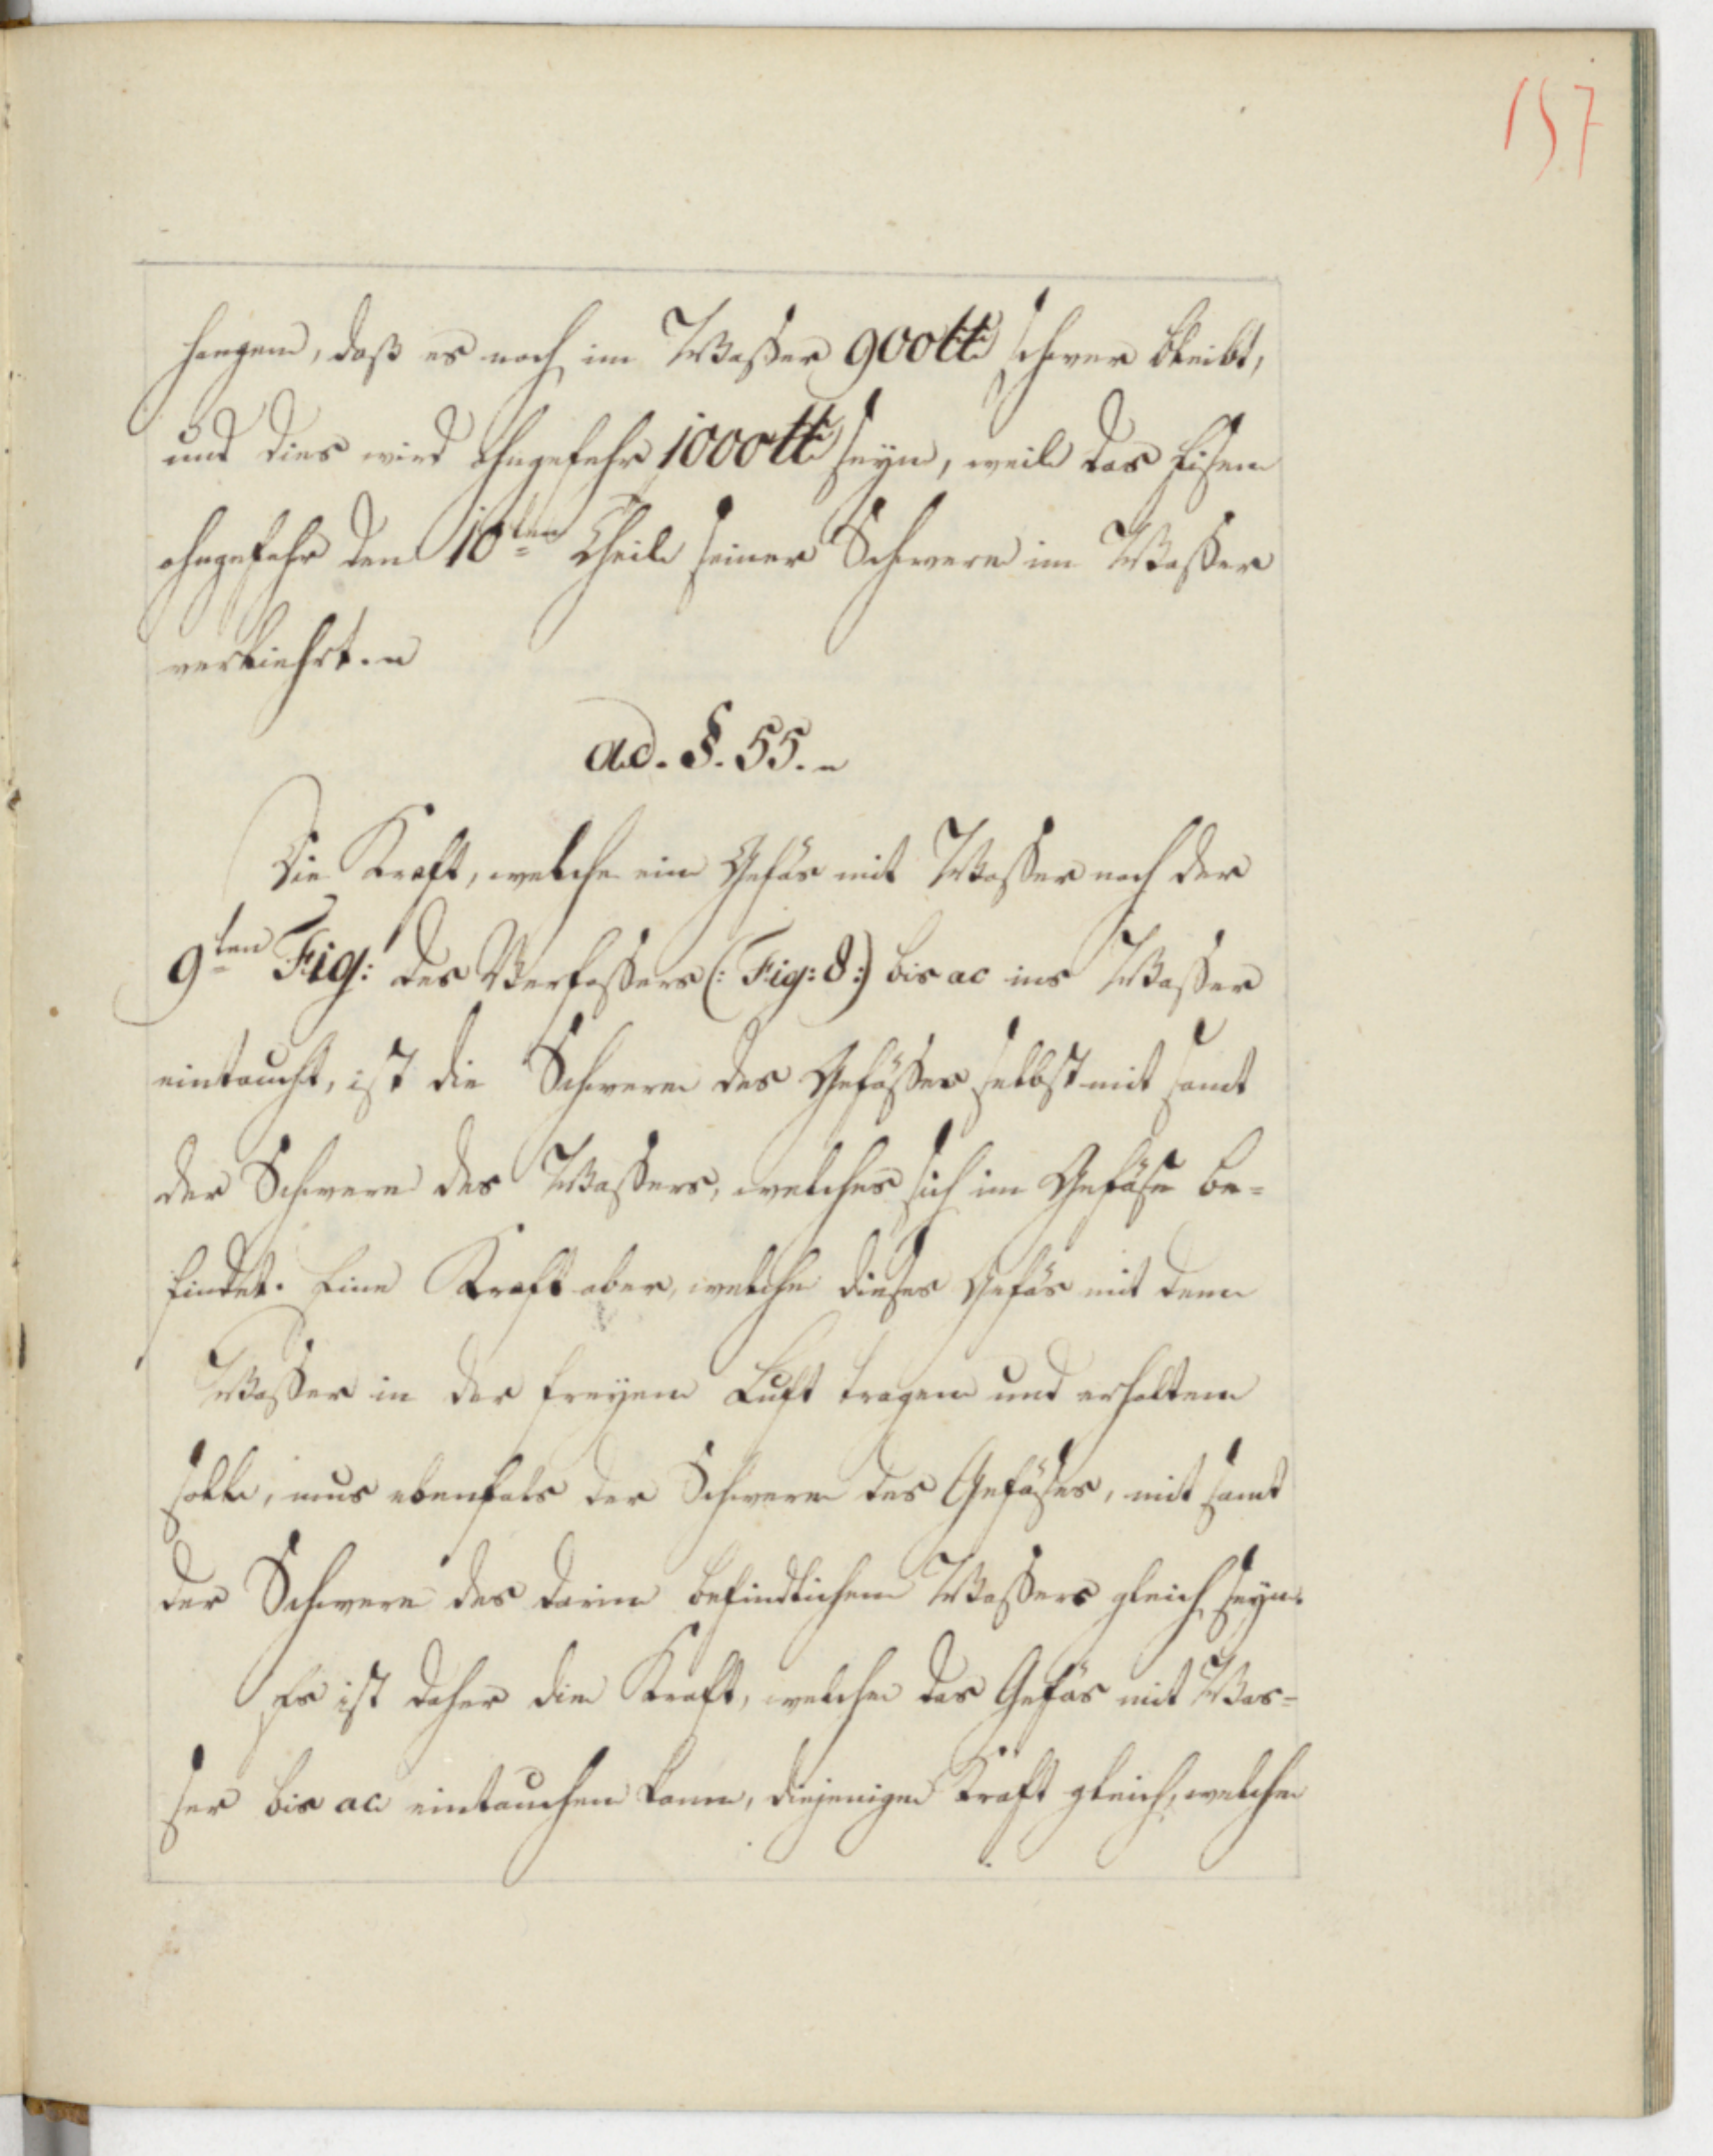 157
hangen, daß es noch im Wasser 900 ℔ schwer bleibt,
und dies wird ohngefehr 1000 ℔ seyn, weil das Eisen
ohngefehr den 10ten Theil seiner Schwere im Wasser
verliehrt.
ad. §. 55.
Die Kraft, welche ein Gefäs mit Wasser nach der
9ten Fig: des Verfassers (: Fig: 8 :) bis ac ins Wasser
eintaucht, ist die Schwere des Gefässes selbst mit samt
der Schwere des Wassers, welches sich im Gefäse be-
findet. Eine Kraft aber, welche dieses Gefäs mit dem
Wasser in der freyen Luft tragen und erhalten
solle, mus ebenfals der Schwere des Gefäses, mit samt
der Schwere des darin befindlichen Wassers gleich seyn.
Es ist daher die Kraft, welche das Gefäs mit Was-
ser bis ac eintauchen kann, diejenige Kraft gleich, welche